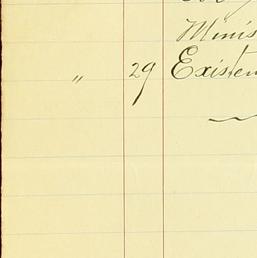 Minis
" 29 Existen